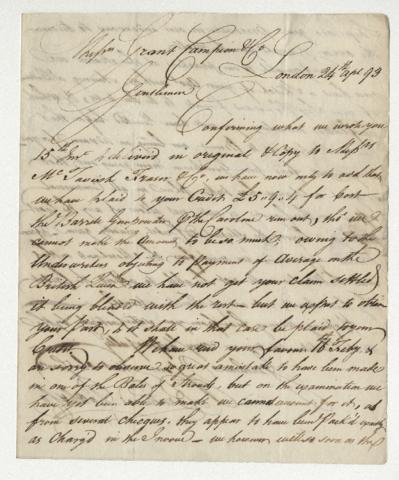 Messrs Grant Campion & Co
London 24th Apl 93
Gentlemen
Confirming what we wrote you
15th Inst delivered in original & Copy to Messrs
Mc Tavish Fraser & Co, we have now only to add that
we have plac'd to your Credit £5..9..4 for Cost
the Barrell Gunpowder the Caroline run out, tho' we
cannot make the Amount to be so much; owing to the
Underwriters objecting to payment of Average on the
British Queen we have not got your claim settled
it being blended with the rest — but we expect to obtain
your part, & it shall in that case be plac'd to your
Credit. We have recd your favour 16th Feby &
are sorry to observe so great a mistake to have been made
in one of the Bales of Strouds, but on the examination we
have yet been able to make we cannot account for it, as
from several Checques, they appear to have been Pack'd exactly
as Charg'd in the Invoice — we however will so soon as the